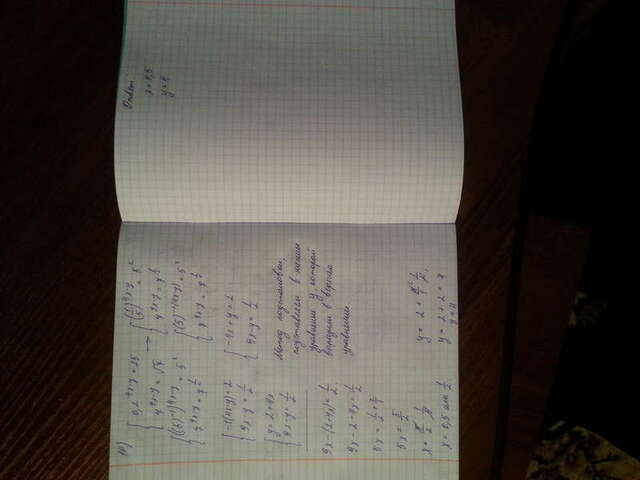 { 0,2^(4x-y) = 25 → { (1/5)^(4x-y) = 5²
{ 7^(9x-y) = √7 { 7^(9x-y) = 7^(1/2)
{ ((5)^-1)^(4x-y) = 5² { (5)^(-1(4x-y)) = 5²
{ 7^(9x-y) = 7^(1/2) { 7^(9x-y) = 7^(1/2)
{ -1(4x-y) = 2 { -4x+y = 2
{ 9x-y = 1/2 { 9x-y = 1/2
{ y = 2+4x
{ 9x-y = 1/2
Метод подстановки,
подставляем в нижнее
уравнение y, который
выразили в верхнем
уравнении.
9x-(2+4x) = 1/2
9x-2-4x = 1/2
5x = 1/2 + 2/1
5x = 5/2
x = 5/2 · 1/5
x = 0,5 или 1/2
y = 2 + 4/1 · 1/2
y = 2+2 = 4
y = 4
Ответ:
x = 0,5
y = 4